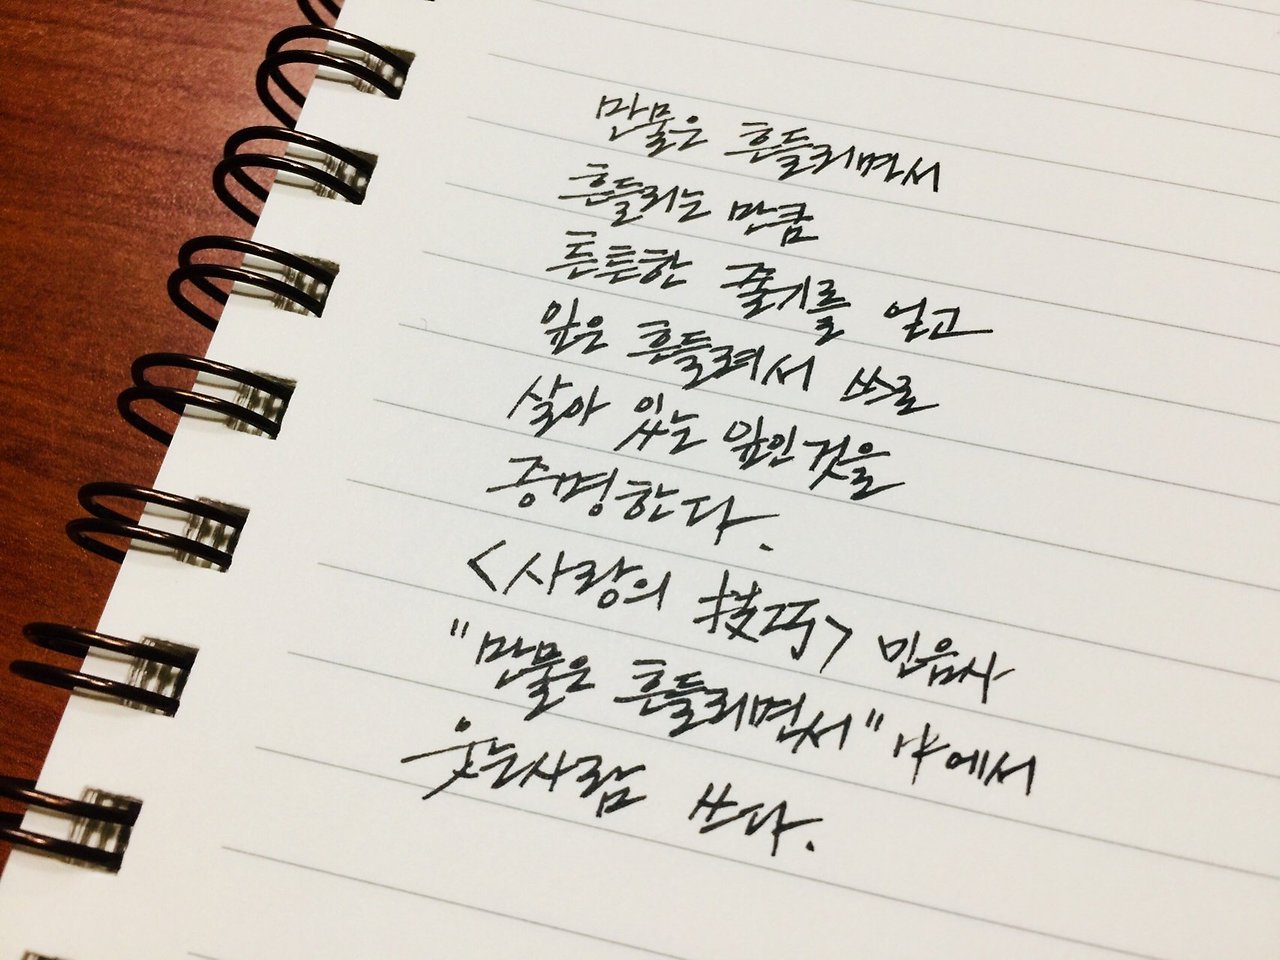 만물은 흔들리면서
흔들리는 만큼
튼튼한 줄기를 얻고
잎은 흔들려서 스스로
살아 있는 잎인것을
증명한다.
<사랑의 技巧> 민음사
"만물은 흔들리면서" 中에서
웃는사람 쓰다.